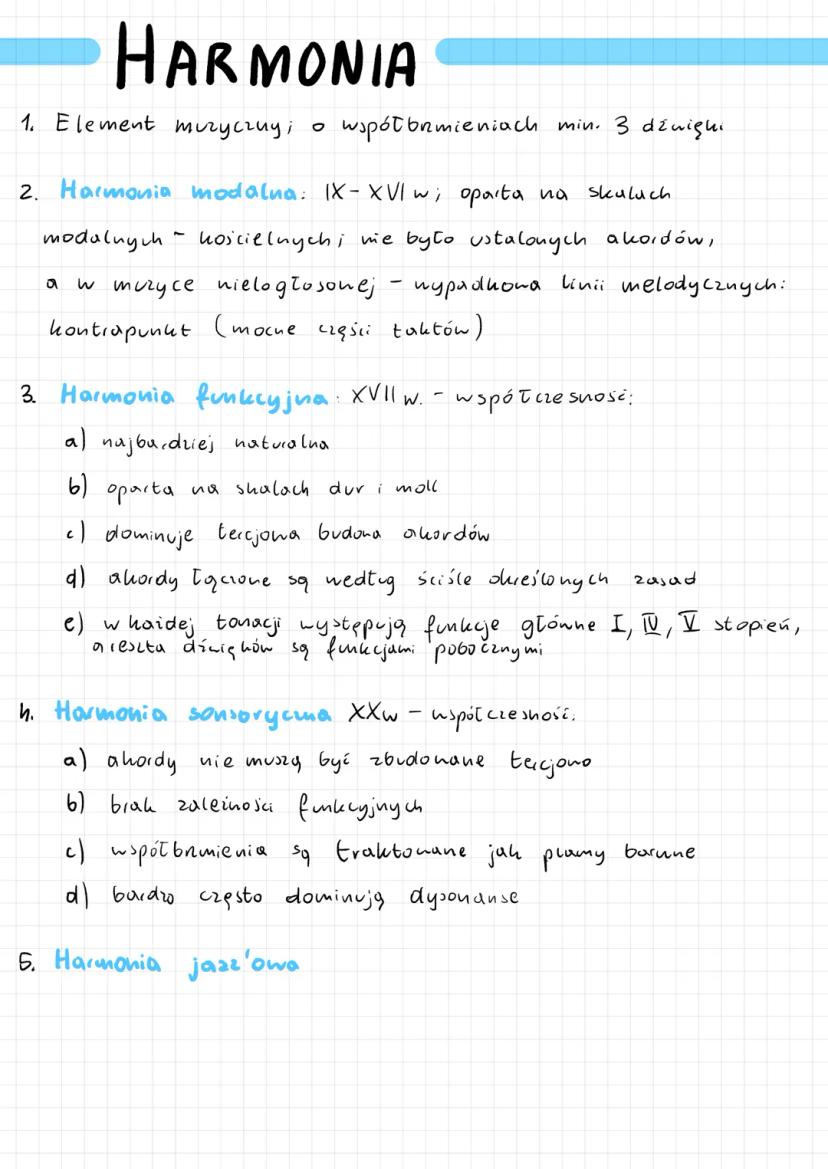 HARMONIA
1. Element muzyczny; o współbrzmieniach min. 3 dźwięki
2. Harmonia modalna: IX - XVI w; oparta na skalach
modalnych - kościelnych; nie było ustalonych akordów,
a w muzyce wielogłosowej - wypadkowa linii melodycznych:
kontrapunkt (mocne części taktów)
3. Harmonia funkcyjna: XVII w. - współczesność:
a) najbardziej naturalna
b) oparta na skalach dur i moll
c) dominuje tercjowa budowa akordów
d) akordy łączone są według ściśle określonych zasad
e) w każdej tonacji występują funkcje główne I, IV, V stopień,
a reszta dźwięków są funkcjami pobocznymi
4. Harmonia sonsoryczna XXw - współczesność:
a) akordy nie muszą być zbudowane tercjowo
b) brak zależności funkcyjnych
c) współbrzmienia są traktowane jak plamy barwne
d) bardzo często dominują dysonanse
5. Harmonia jazz'owa